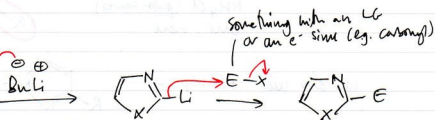 something with an LG
or an e⁻ sink (eg. carbonyl)
⊖ ⊕
BuLi
N
Li
X
E-X
N
E
X